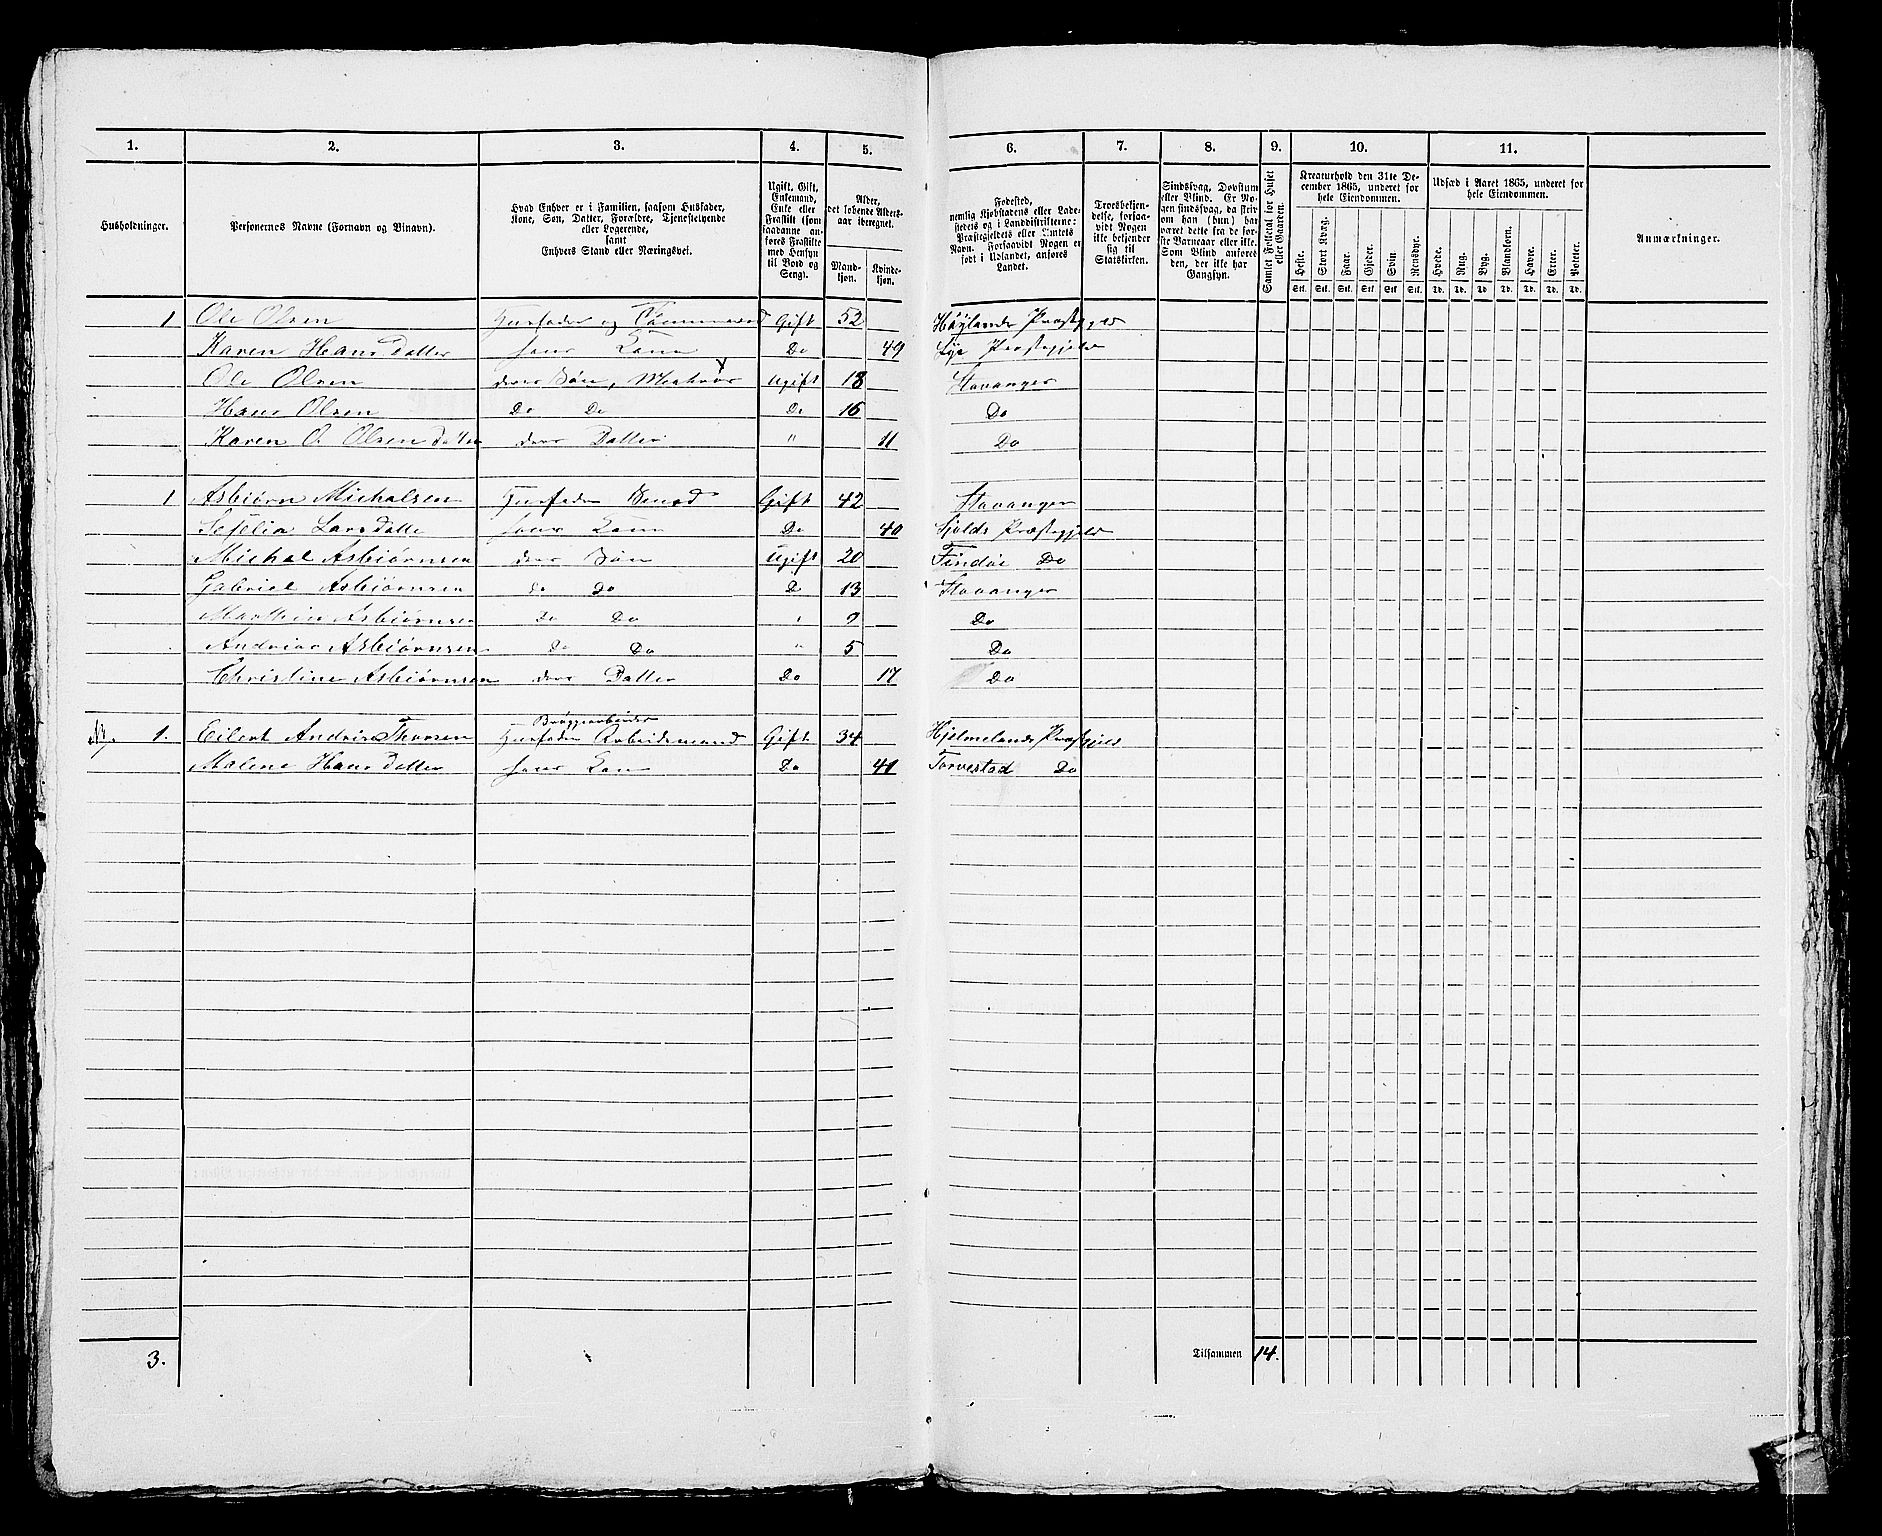 1. 2. 3. 4. 5. 6. 7. 8. 9. 10. 11.
Husholdninger.
Personernes Navne (Fornavn og Binavn).
Hvad Enhver er i Familien, saasom Husfader,
Kone, Søn, Datter, Forældre, Tjenestetyende
eller Logerende,
samt
Enhvers Stand eller Næringsvei.
Ugift, Gift,
Enkemand,
Enke eller
Fraskilt (som
saadanne an-
føres Fraskilte
med Hensyn
til Bord og
Seng).
Alder,
det løbende Alders-
aar iberegnet.
Mand-
kjøn.
Kvinde-
kjøn.
Fødested,
nemlig Kjøbstadens eller Lade-
stedets og i Landdistrikterne:
Præstegjeldets eller Amtets
Navn. Forsaavidt Nogen er
født i Udlandet, anføres
Landet.
Troesbekjen-
delse, forsaa-
vidt Nogen
ikke bekjender
sig til
Statskirken.
Sindssvag, Døvstum
eller Blind. Er No-
gen sindssvag, da skriv
om han (hun) har
været dette fra de før-
ste Barneaar eller ikke.
Som Blind anføres
den, der ikke har
Gangsyn.
Samlet Folketal for Huset
eller Gaarden.
Kreaturhold den 31te De-
cember 1865, underet for
hele Eiendommen.
Heste. Stort Kvæg. Faar. Gjeder. Svin. Rensdyr.
Stk. Stk. Stk. Stk. Stk. Stk.
Udsæd i Aaret 1865, underet for
hele Eiendommen.
Hvede. Rug. Byg. Blandkorn. Havre. Erter. Poteter.
Td. Td. Td. Td. Td. Td. Td.
Anmærkninger.
1 Ole Olsen Husfader og Tømmermd Gift 52 Høylands Præstegjeld
Karen Hans Datter hans Kone Do 49 Lye Præstegjeld
Ole Olsen deres Søn, Ugift 18 Stavanger
Hans Olsen Do Do Do 16 Do
Karen O Olsen Datter deres Datter " 11 Do
1 Asbiørn Michalsen Husfader Gift 42 Stavanger
Lars Datte hans Kone Do 40 Sjolds Præstegjeld
Michal Asbiørnsen deres Søn Ugift 20 Findøi Do
Gabriel Asbiørnsen Do Do Do 13 Stavanger
Marthin Asbiørnsen Do Do " 9 Do
Andrias Asbiørnsen Do Do " 5 Do
Christine Asbiørnsen deres Datter Do 17 Do
Bryggearbeider
1. Eilert Andrias Thorsen Husfader Arbeidsmand Gift 34 Hjelmelands Præstgjeld
Malene Hans Datter hans Kone Do 41 Torvestad Do
3. Tilsammen 14.